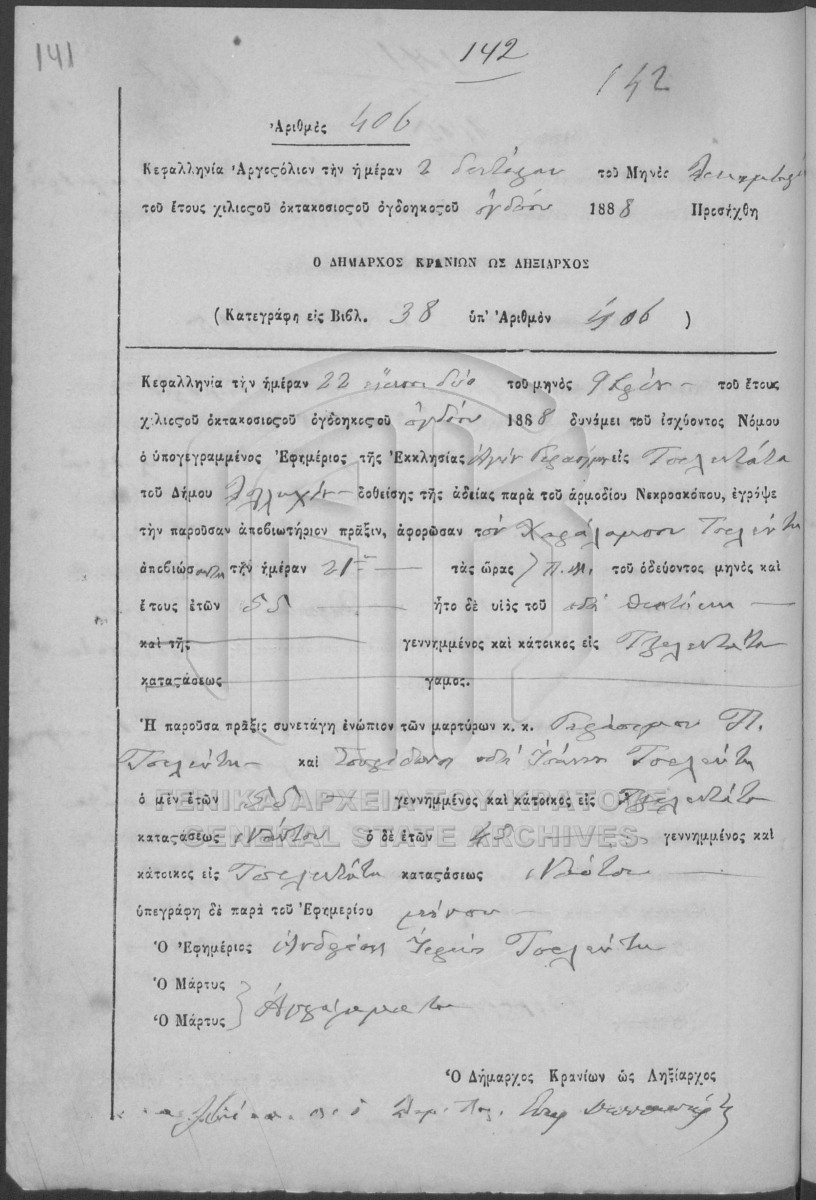 141
142
142
Ἀριθμὸς 406
Κεφαλληνία Ἀργοςόλιον τὴν ἡμέραν 2 δευτέραν τοῦ Μηνὸς
τοῦ ἔτους χιλιοςοῦ ὀκτακοσιοςοῦ ὀγδοηκοςοῦ ὀγδόου 1888 Προσήχθη
Ο ΔΗΜΑΡΧΟΣ ΚΡΑΝΙΩΝ ΩΣ ΛΗΞΙΑΡΧΟΣ
(Κατεγράφη εἰς Βιβλ. 38 ὑπ' Ἀριθμὸν 406)
Κεφαλληνία τὴν ἡμέραν 22 εἴκοσι δύο τοῦ μηνὸς 9βρίου τοῦ ἔτους
χιλιοςοῦ ὀκτακοσιοςοῦ ὀγδοηκοςοῦ ὀγδόου 1888 δυνάμει τοῦ ἰσχύοντος Νόμου
ὁ ὑπογεγραμμένος Ἐφημέριος τῆς Ἐκκλησίας Ἁγίου Γερασίμου εἰς Τσελεντάτα
τοῦ Δήμου δοθείσης τῆς ἀδείας παρὰ τοῦ ἁρμοδίου Νεκροσκόπου, ἔγρψε
τὴν παροῦσαν ἀποβιωτήριον πρᾶξιν, ἀφορῶσαν τὸν Χαράλαμπον Τσελέντη
ἀποβιώσαντα τὴν ἡμέραν 21 τὰς ὥρας 7 π.μ. τοῦ ὁδεύοντος μηνὸς καὶ
ἔτους ἐτῶν 55 ἦτο δὲ υἱὸς τοῦ ποτὲ
καὶ τῆς γεννημμένος καὶ κάτοικος εἰς Τζελεντάτα
καταςάσεως γαμος.
Ἡ παροῦσα πρᾶξις συνετάγη ἐνώπιον τῶν μαρτύρων κ. κ. Γεράσιμου Π.
Τσελέντη καὶ Σπυρίδωνος ποτὲ Ἰωάννη Τσελέντη
ὁ μὲν ἐτῶν 55 γεννημμένος καὶ κάτοικος εἰς Τζελεντάτα
καταςάσεως ναύτου ὁ δὲ ἐτῶν γεννημμένος καὶ
κάτοικος εἰς Τσελεντάτα καταςάσεως ναύτου
ὑπεγράφη δὲ παρὰ τοῦ Ἐφημερίου μόνου
Ὁ Ἐφημέριος Ἀνδρέας Ἱερεὺς Τσελέντης
Ὁ Μάρτυς
Ὁ Μάρτυς Ἀγράμματοι
Ὁ Δήμαρχος Κρανίων ὡς Ληξίαρχος
ΓΕΝΙΚΑ ΑΡΧΕΙΑ ΤΟΥ ΚΡΑΤΟΥΣ
GENERAL STATE ARCHIVES